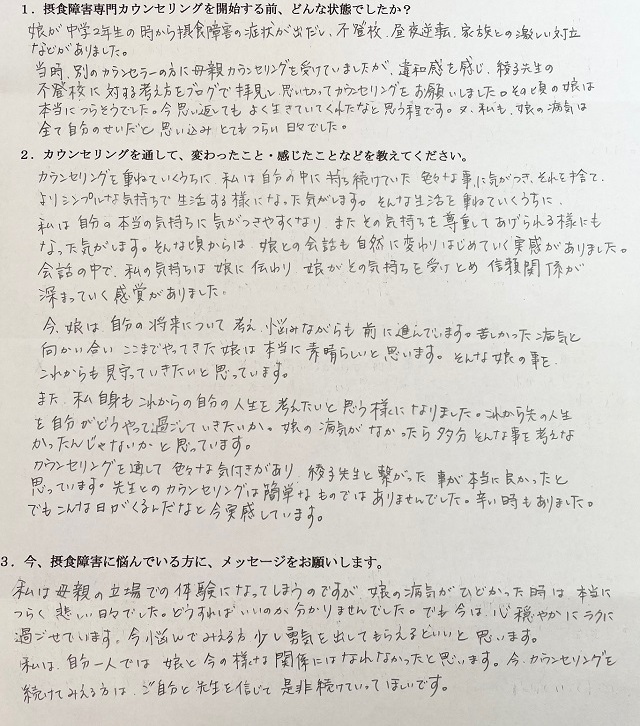 １．摂食障害専門カウンセリングを開始する前、どんな状態でしたか？
娘が中学2年生の時から摂食障害の症状が出だし、不登校、昼夜逆転、家族との激しい対立
などがありました。
当時、別のカウンセラーの方に母親カウンセリングを受けていましたが、違和感を感じ、綾子先生の
不登校に対する考え方をブログで拝見し、思い切ってカウンセリングをお願いしました。その頃の娘は
本当につらそうでした。今思い返してもよく生きていてくれたなと思う程です。又、私も、娘の病気は
全て自分のせいだと思い込みとてもつらい日々でした。
２．カウンセリングを通して、変わったこと・感じたことなどを教えてください。
カウンセリングを重ねていくうちに、私は自分の中に持ち続けていた色々な事に気がつき、それを手捨て、
よりシンプルな気持ちで生活する様になった気がします。そんな生活を重ねていくうちに、
私は自分の本当の気持ちに気がつきやすくなり、またその気持ちを尊重してあげられる様にも
なった気がします。そんな頃からは、娘との会話も自然に変わりはじめていく実感がありました。
会話の中で、私の気持ちは娘に伝わり、娘がその気持ちを受けとめ信頼関係が
深まっていく感覚がありました。
今、娘は、自分の将来について考え、悩みながらも前に進んでいます。苦しかった病気と
向かい合いここまでやってきた娘は本当に素晴らしいと思います。そんな娘の事を、
これからも見守っていきたいと思っています。
また、私自身もこれからの自分の人生を考えたいと思う様になりました。これから先の人生
を自分がどうやって過ごしていきたいか。娘の病気がなかったら多分そんな事を考えな
かったんじゃないかと思っています。
カウンセリングを通して色々な気付きがあり、綾子先生と繋がった事が本当に良かったと
思っています。先生とのカウンセリングは簡単なものではありませんでした。辛い時もありました。
でもこんな日がくるんだなと今実感しています。
３．今、摂食障害に悩んでいる方に、メッセージをお願いします。
私は母親の立場での体験になってしまうのですが、娘の病気がひどかった時は本当に
つらく悲しい日々でした。どうすればいいのか分かりませんでした。でも今は、心穏やかにラクに
過ごせています。今悩んでみえる方少し勇気を出してもらえるといいと思います。
私は、自分一人では娘と今の様な関係にはなれなかったと思います。今、カウンセリングを
続けてみえる方は、ご自分と先生を信じて是非続けていってほしいです。